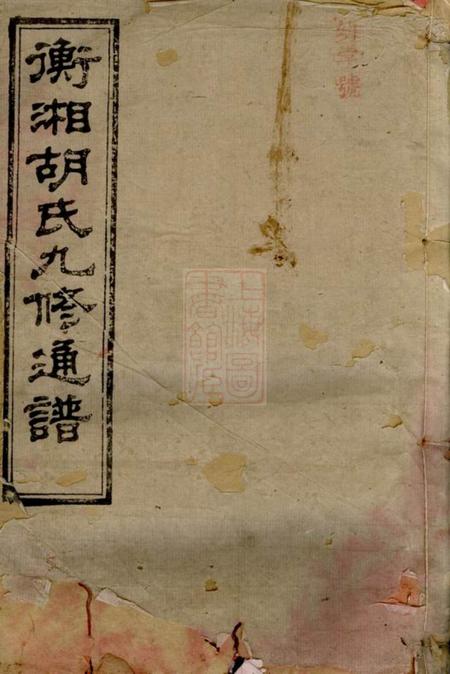 衡湘胡氏九修通譜
號
上海圖書館藏